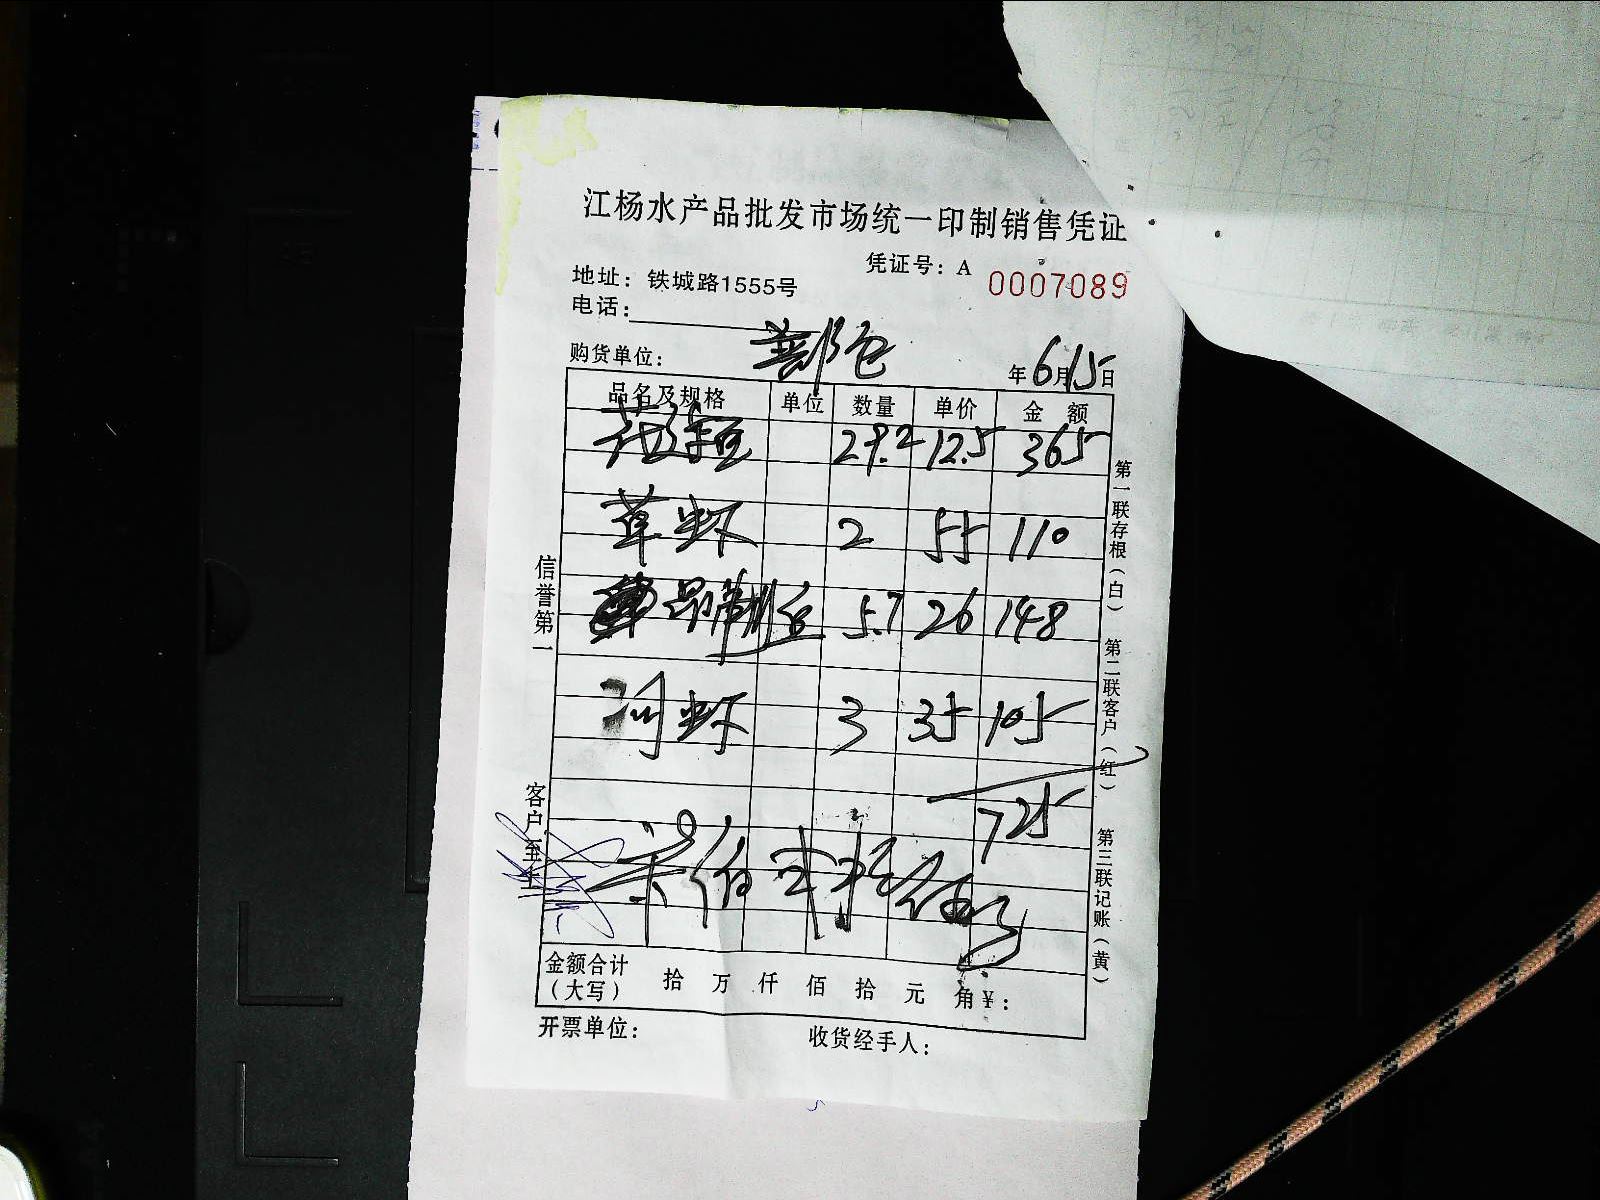 江杨水产品批发市场统一印制销售凭证
凭证号：A 0007089
地址：铁城路1555号
电话：
购货单位：
年6月15日
品名及规格 单位 数量 单价 金额
29.2 12.5 365
草虾 2 55 110
5.7 26 148
河虾 3 35 105
725
金额合计（大写） 拾 万 仟 佰 拾 元 角 ¥：
开票单位： 收货经手人：
信誉第一
客户至上
第一联存根（白）
第二联客户（红）
第三联记账（黄）